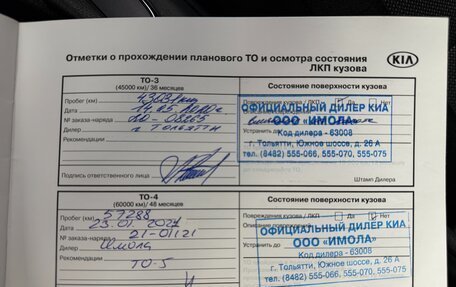 Отметки о прохождении планового ТО и осмотра состояния
ЛКП кузова
KIA
ТО-3
(45000 км)/ 36 месяцев
Состояние поверхности кузова
Пробег (км)
Повреждения кузова / ЛКП Да Нет
Дата
№ заказа-наряда
Дилер г Тольятти
Устранить до
Рекомендации
ОФИЦИАЛЬНЫЙ ДИЛЕР КИА
ООО "ИМОЛА"
Код дилера - 63008
г. Тольятти, Южное шоссе, д. 26 А
тел. (8482) 555-066, 555-070, 555-075
Подпись ответственного лица
Штамп Дилера
ТО-4
(60000 км)/ 48 месяцев
Состояние поверхности кузова
Пробег (км) 57288
Повреждения кузова / ЛКП Да Нет
Дата 23.01.2021
№ заказа-наряда 21-01121
Дилер Имола
Рекомендации
ТО-5
ОФИЦИАЛЬНЫЙ ДИЛЕР КИА
ООО "ИМОЛА"
Код дилера - 63008
г. Тольятти, Южное шоссе, д. 26 А
тел. (8482) 555-066, 555-070, 555-075